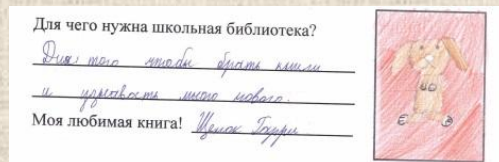 Для чего нужна школьная библиотека?
Для того чтобы брать книги
и узнавать много нового.
Моя любимая книга! Щенок